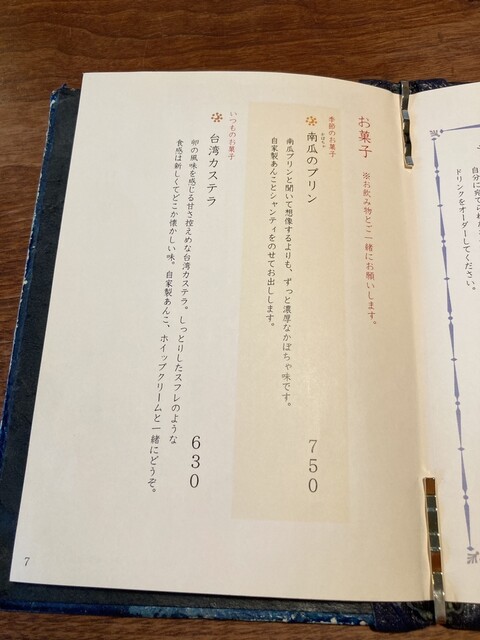 自分に宛てられ
ドリンクをオーダーしてください。
お菓子 ※お飲み物とご一緒にお願いします。
季節のお菓子
南瓜のプリン 750
かぼちゃ
南瓜プリンと聞いて想像するよりも、ずっと濃厚なかぼちゃ味です。
自家製あんことシャンティをのせてお出しします。
いつものお菓子
台湾カステラ 630
卵の風味を感じる甘さ控えめな台湾カステラ。しっとりしたスフレのような
食感は新しくてどこか懐かしい味。自家製あんこ、ホイップクリームと一緒にどうぞ。
7